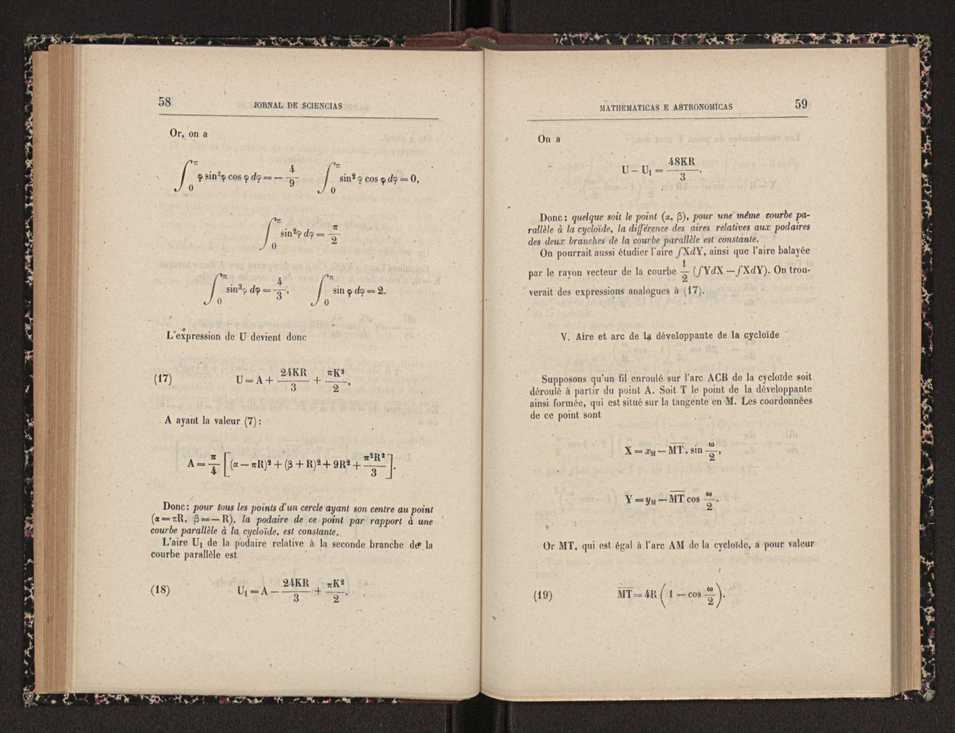 58 JORNAL DE SCIENCIAS
Or, on a
∫₀^π φ sin²φ cos φ dφ = — 4/9 ∫₀^π sin² φ cos φ dφ = 0,
∫₀^π sin²φ dφ = π/2
∫₀^π sin³φ dφ = 4/3, ∫₀^π sin φ dφ = 2.
L'expression de U devient donc
(17) U = A + 24KR/3 + πK²/2,
A ayant la valeur (7) :
A = π/4 [(α — πR)² + (β + R)² + 9R² + π²R²/3].
Donc: pour tous les points d'un cercle ayant son centre au point
(α = πR, β = — R), la podaire de ce point par rapport à une
courbe parallèle à la cycloïde, est constante.
L'aire U₁ de la podaire relative à la seconde branche de la
courbe parallèle est
(18) U₁ = A — 24KR/3 + πK²/2.
MATHEMATICAS E ASTRONOMICAS 59
On a
U — U₁ = 48KR/3.
Donc : quelque soit le point (α, β), pour une même courbe pa-
rallèle à la cycloïde, la différence des aires relatives aux podaires
des deux branches de la courbe parallèle est constante.
On pourrait aussi étudier l'aire ∫XdY, ainsi que l'aire balayée
par le rayon vecteur de la courbe 1/2 (∫YdX — ∫XdY). On trou-
verait des expressions analogues à (17).
V. Aire et arc de la développante de la cycloïde
Supposons qu'un fil enroulé sur l'arc ACB de la cycloïde soit
déroulé à partir du point A. Soit T le point de la développante
ainsi formée, qui est situé sur la tangente en M. Les coordonnées
de ce point sont
X = x_M — MT. sin ω/2,
Y = y_M — MT cos ω/2.
Or MT, qui est égal à l'arc AM de la cycloïde, a pour valeur
(19) MT = 4R (1 — cos ω/2).